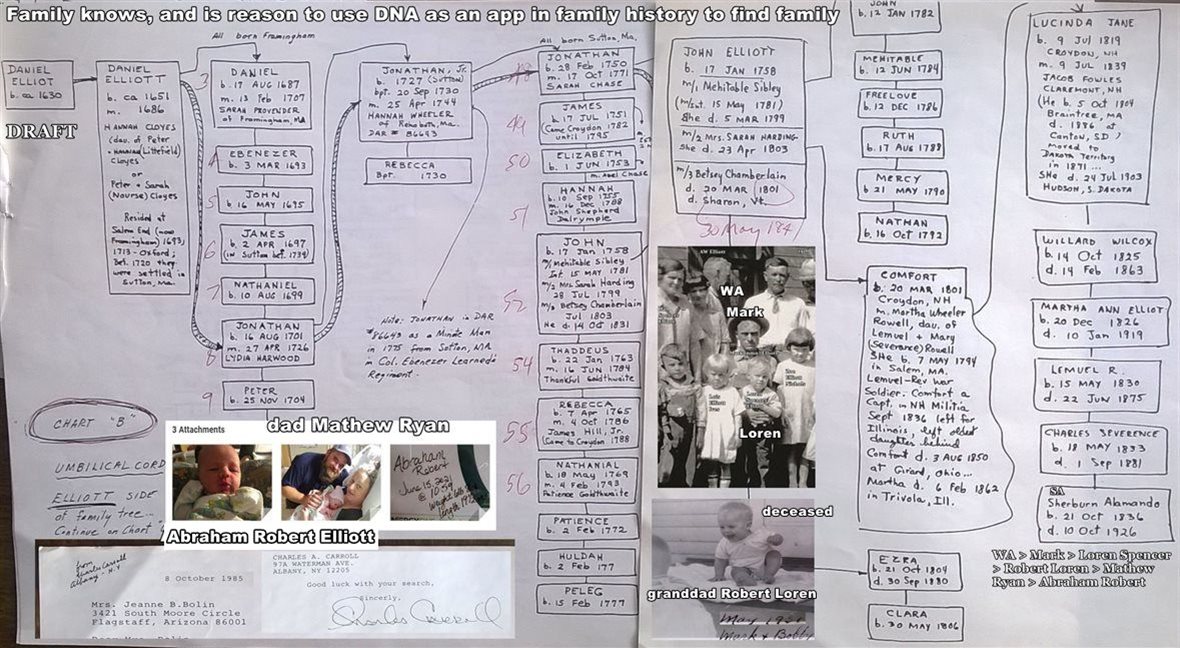 Family knows, and is reason to use DNA as an app in family history to find family
All born Framingham
DANIEL
ELLIOT
b. ca 1630
DRAFT
DANIEL
ELLIOTT
b. ca 1651
m. 1686
HANNAH CLOYES
(dau. of Peter
+ Hannah (Littlefield)
Cloyes
or
Peter + Sarah
(Nourse) Cloyes
Resided at
Salem End (now
Framingham) 1693;
1713 - Oxford;
Bet. 1720 they
were settled in
Sutton, Ma.
3
DANIEL
b. 17 AUG 1687
m. 13 Feb 1707
SARAH PROVENDER
of Framingham, MA
4
EBENEZER
b. 3 MAR 1693
5
JOHN
b. 16 MAY 1695
6
JAMES
b. 2 APR 1697
(in Sutton bef. 1734)
7
NATHANIEL
b. 10 AUG 1699
8
JONATHAN
b. 16 AUG 1701
m. 27 APR 1726
LYDIA HARWOOD
9
PETER
b. 25 NOV 1704
JONATHAN, Jr.
b. 1727 (Sutton)
bpt. 20 Sep 1730
m. 25 Apr 1744
HANNAH WHEELER
of Rehoboth, Ma.
DAR # 86643
REBECCA
Bpt. 1730
Note: JONATHAN is DAR
#86643 as a Minute Man
in 1775 from Sutton, MA
in Col. Ebenezer Learned's
Regiment.
CHART "B"
UMBILICAL CORD
ELLIOTT SIDE
of family tree...
Continue on Chart
3 Attachments
dad Mathew Ryan
Abraham
Robert
June 15, 2021
@ 10:59
Abraham Robert Elliott
from
Charles Carroll
Albany - N.Y
8 October 1985
Mrs. Jeanne B.Bolin
3421 South Moore Circle
Flagstaff, Arizona 86001
CHARLES A. CARROLL
97A WATERMAN AVE.
ALBANY, NY 12205
Good luck with your search,
Sincerely,
Charles Carroll
All born Sutton, Ma.
48
JONATHAN
b. 28 Feb 1750
m. 17 Oct 1771
SARAH CHASE
49
JAMES
b. 17 JUL 1751
(Came Croydon 1782
until 1795
50
ELIZABETH
b. 1 JUN 1753
m. Abel Chase
51
HANNAH
b. 10 Sep 1755
m. 16 Dec 1788
John Shepherd
Dalrymple
52
JOHN
b. 17 Jan 1758
m/1 Mehitable Sibley
Int 15 MAY 1781
m/2 Mrs. Sarah Harding
28 Jul 1799
m/3 Betsey Chamberlain
Jul 1803
He d. 14 Oct 1831
54
THADDEUS
b. 22 Jan 1763
m. 16 JUN 1784
Thankful Goldthwaite
55
REBECCA
b. 7 Apr 1765
m. 4 Oct 1786
James Hill, Jr.
(Came to Croydon) 1788
56
NATHANIAL
b. 18 May 1769
m. 4 Feb 1793
Patience Goldthwaite
PATIENCE
b. 2 Feb 1772
HULDAH
b. 2 Feb 177
PELEG
b. 15 Feb 1777
JOHN ELLIOTT
b. 17 JAN 1758
m/1 Mehitible Sibley
(m/int. 15 May 1781)
She d. 5 MAR 1799
m/2 Mrs. SARAH HARDING
She d. 23 Apr 1803
m/3 Betsey Chamberlain
d. 20 MAR 1801
d. Sharon, Vt.
30 May 1841
AW Elliott
WA
Mark
Loren
deceased
granddad Robert Loren
Mark & Bobby
JOHN
b. 12 JAN 1782
MEHITABLE
b. 12 JUN 1784
FREELOVE
b. 12 DEC 1786
RUTH
b. 17 AUG 1788
MERCY
b. 21 MAY 1790
NATHAN
b. 16 Oct 1792
COMFORT
b. 20 MAR 1801
Croydon, NH
m. Martha Wheeler
Rowell, dau. of
Lemuel + Mary
(Severance) Rowell
SHe b. 7 MAY 1794
in Salem, MA.
Lemuel-Rev War
Soldier. Comfort a
Capt. in NH Militia
Sept 1836 left for
Illinois. Left oldest
daughter behind
Comfort d. 3 AUG 1850
at Girard, Ohio...
Martha d. 6 Feb 1862
in Trivola, Ill.
EZRA
b. 21 Oct 1804
d. 30 Sep 1880
CLARA
b. 30 MAY 1806
LUCINDA JANE
b. 9 Jul 1819
CROYDON, NH
m. 9 Jul 1839
JACOB FOWLES
CLAREMONT, NH
(He b. 5 Oct 1804
Braintree, MA
d. 1886 at
Canton, SD)
moved to
Dakota Territory
in 1871...
SHe d. 24 Jul 1903
HUDSON, S. DAKOTA
WILLARD WILCOX
b. 14 Oct 1825
d. 14 Feb 1863
MARTHA ANN ELLIOT
b. 20 Dec 1826
d. 10 Jan 1919
LEMUEL R.
b. 15 MAY 1830
d. 22 JUN 1875
CHARLES SEVERENCE
b. 18 MAY 1833
d. 1 Sep 1881
SA
Sherburn Alamando
b. 21 Oct 1836
d. 10 Oct 1926
WA > Mark > Loren Spencer
> Robert Loren > Mathew
Ryan > Abraham Robert